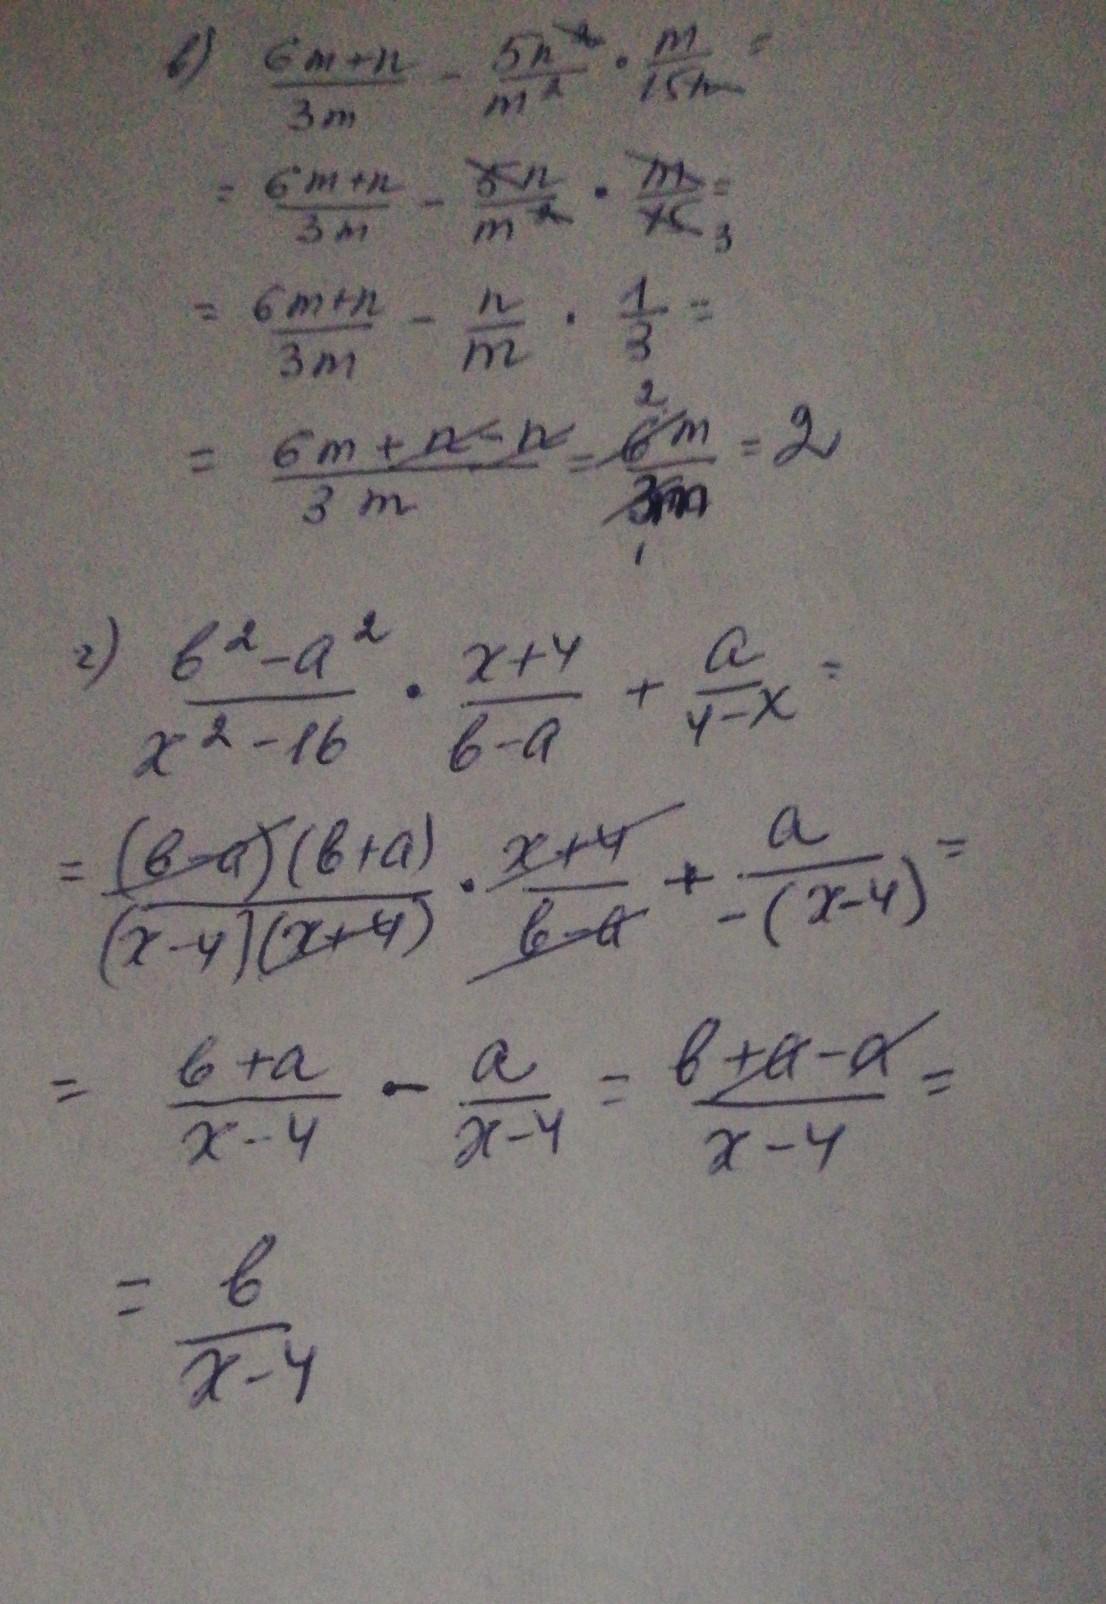 в) (6m+n)/(3m) - (5n²)/(m²) · m/(15n) =
= (6m+n)/(3m) - (5n)/(m²) · m/15 3 =
= (6m+n)/(3m) - n/m · 1/3 =
= (6m+n-n)/(3m) = 2 (6m)/(3m) 1 = 2
г) (b²-a²)/(x²-16) · (x+4)/(b-a) + a/(4-x) =
= ((b-a)(b+a))/((x-4)(x+4)) · (x+4)/(b-a) + a/(-(x-4)) =
= (b+a)/(x-4) - a/(x-4) = (b+a-a)/(x-4) =
= b/(x-4)